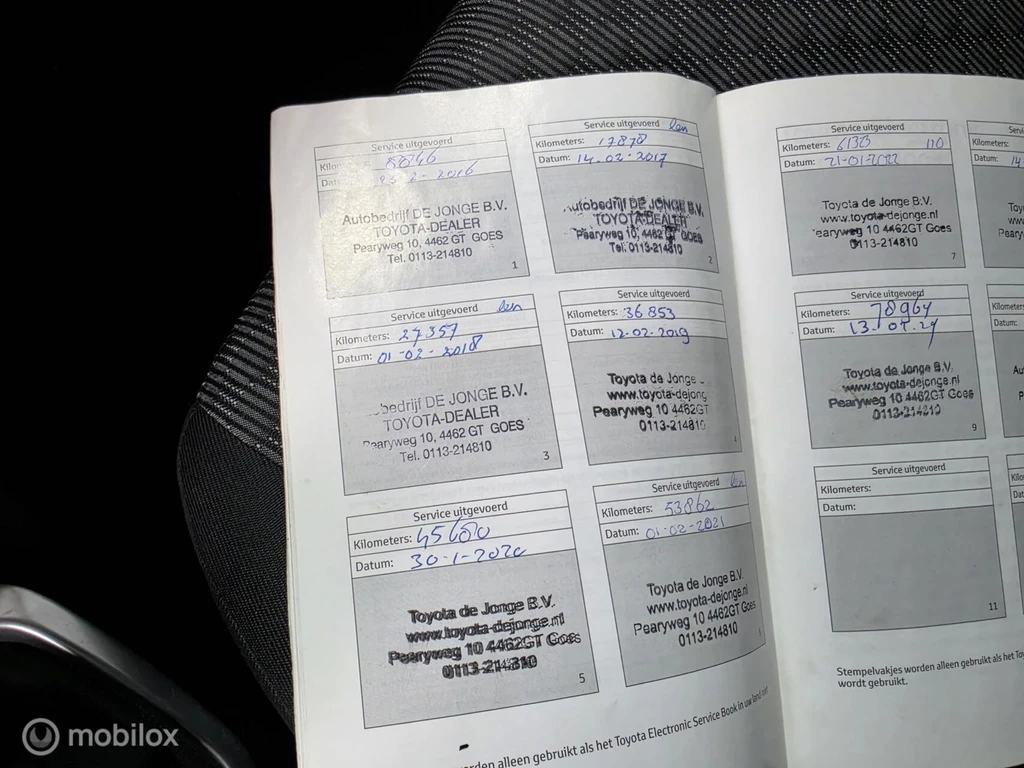 Service uitgevoerd
Datum: 2-2016
Autobedrijf DE JONGE B.V.
TOYOTA-DEALER
Pearyweg 10, 4462 GT GOES
Tel. 0113-214810
1
Service uitgevoerd
Kilometers: 17878
Datum: 14-02-2017
utobedrijf DE JONGE B.V.
TOYOTA-DEALER
Pearyweg 10, 4462 GT GOES
Tel. 0113-214810
2
Service uitgevoerd
Kilometers: 27357
Datum: 01-02-2018
bedrijf DE JONGE B.V.
TOYOTA-DEALER
Pearyweg 10, 4462 GT GOES
Tel. 0113-214810
3
Service uitgevoerd
Kilometers: 36853
Datum: 12-02-2019
Toyota de Jonge
www.toyota-dejong
Pearyweg 10 4462GT
0113-214810
4
Service uitgevoerd
Kilometers:
Datum: 30-1-2020
Toyota de Jonge B.V.
www.toyota-dejonge.nl
Pearyweg 10 4462GT Goes
0113-214810
5
Service uitgevoerd
Kilometers: 53862
Datum: 01-02-2021
Toyota de Jonge B.V.
www.toyota-dejonge.nl
Pearyweg 10 4462GT Goes
0113-214810
orden alleen gebruikt als het Toyota Electronic Service Book in uw land niet
Service uitgevoerd
Kilometers:
Datum: 21-01-2022
Toyota de Jonge B.V.
www.toyota-dejonge.nl
earyweg 10 4462GT Goes
0113-214810
7
Service uitgevoerd
Kilometers: 78964
Datum:
Toyota de Jonge B.V.
www.toyota-dejonge.nl
Pearyweg 10 4462GT Goes
0113-214810
9
Service uitgevoerd
Kilometers:
Datum:
11
Stempelvakjes worden alleen gebruikt als het Toy
wordt gebruikt.
Kilometers:
Datum: 14
mobilox